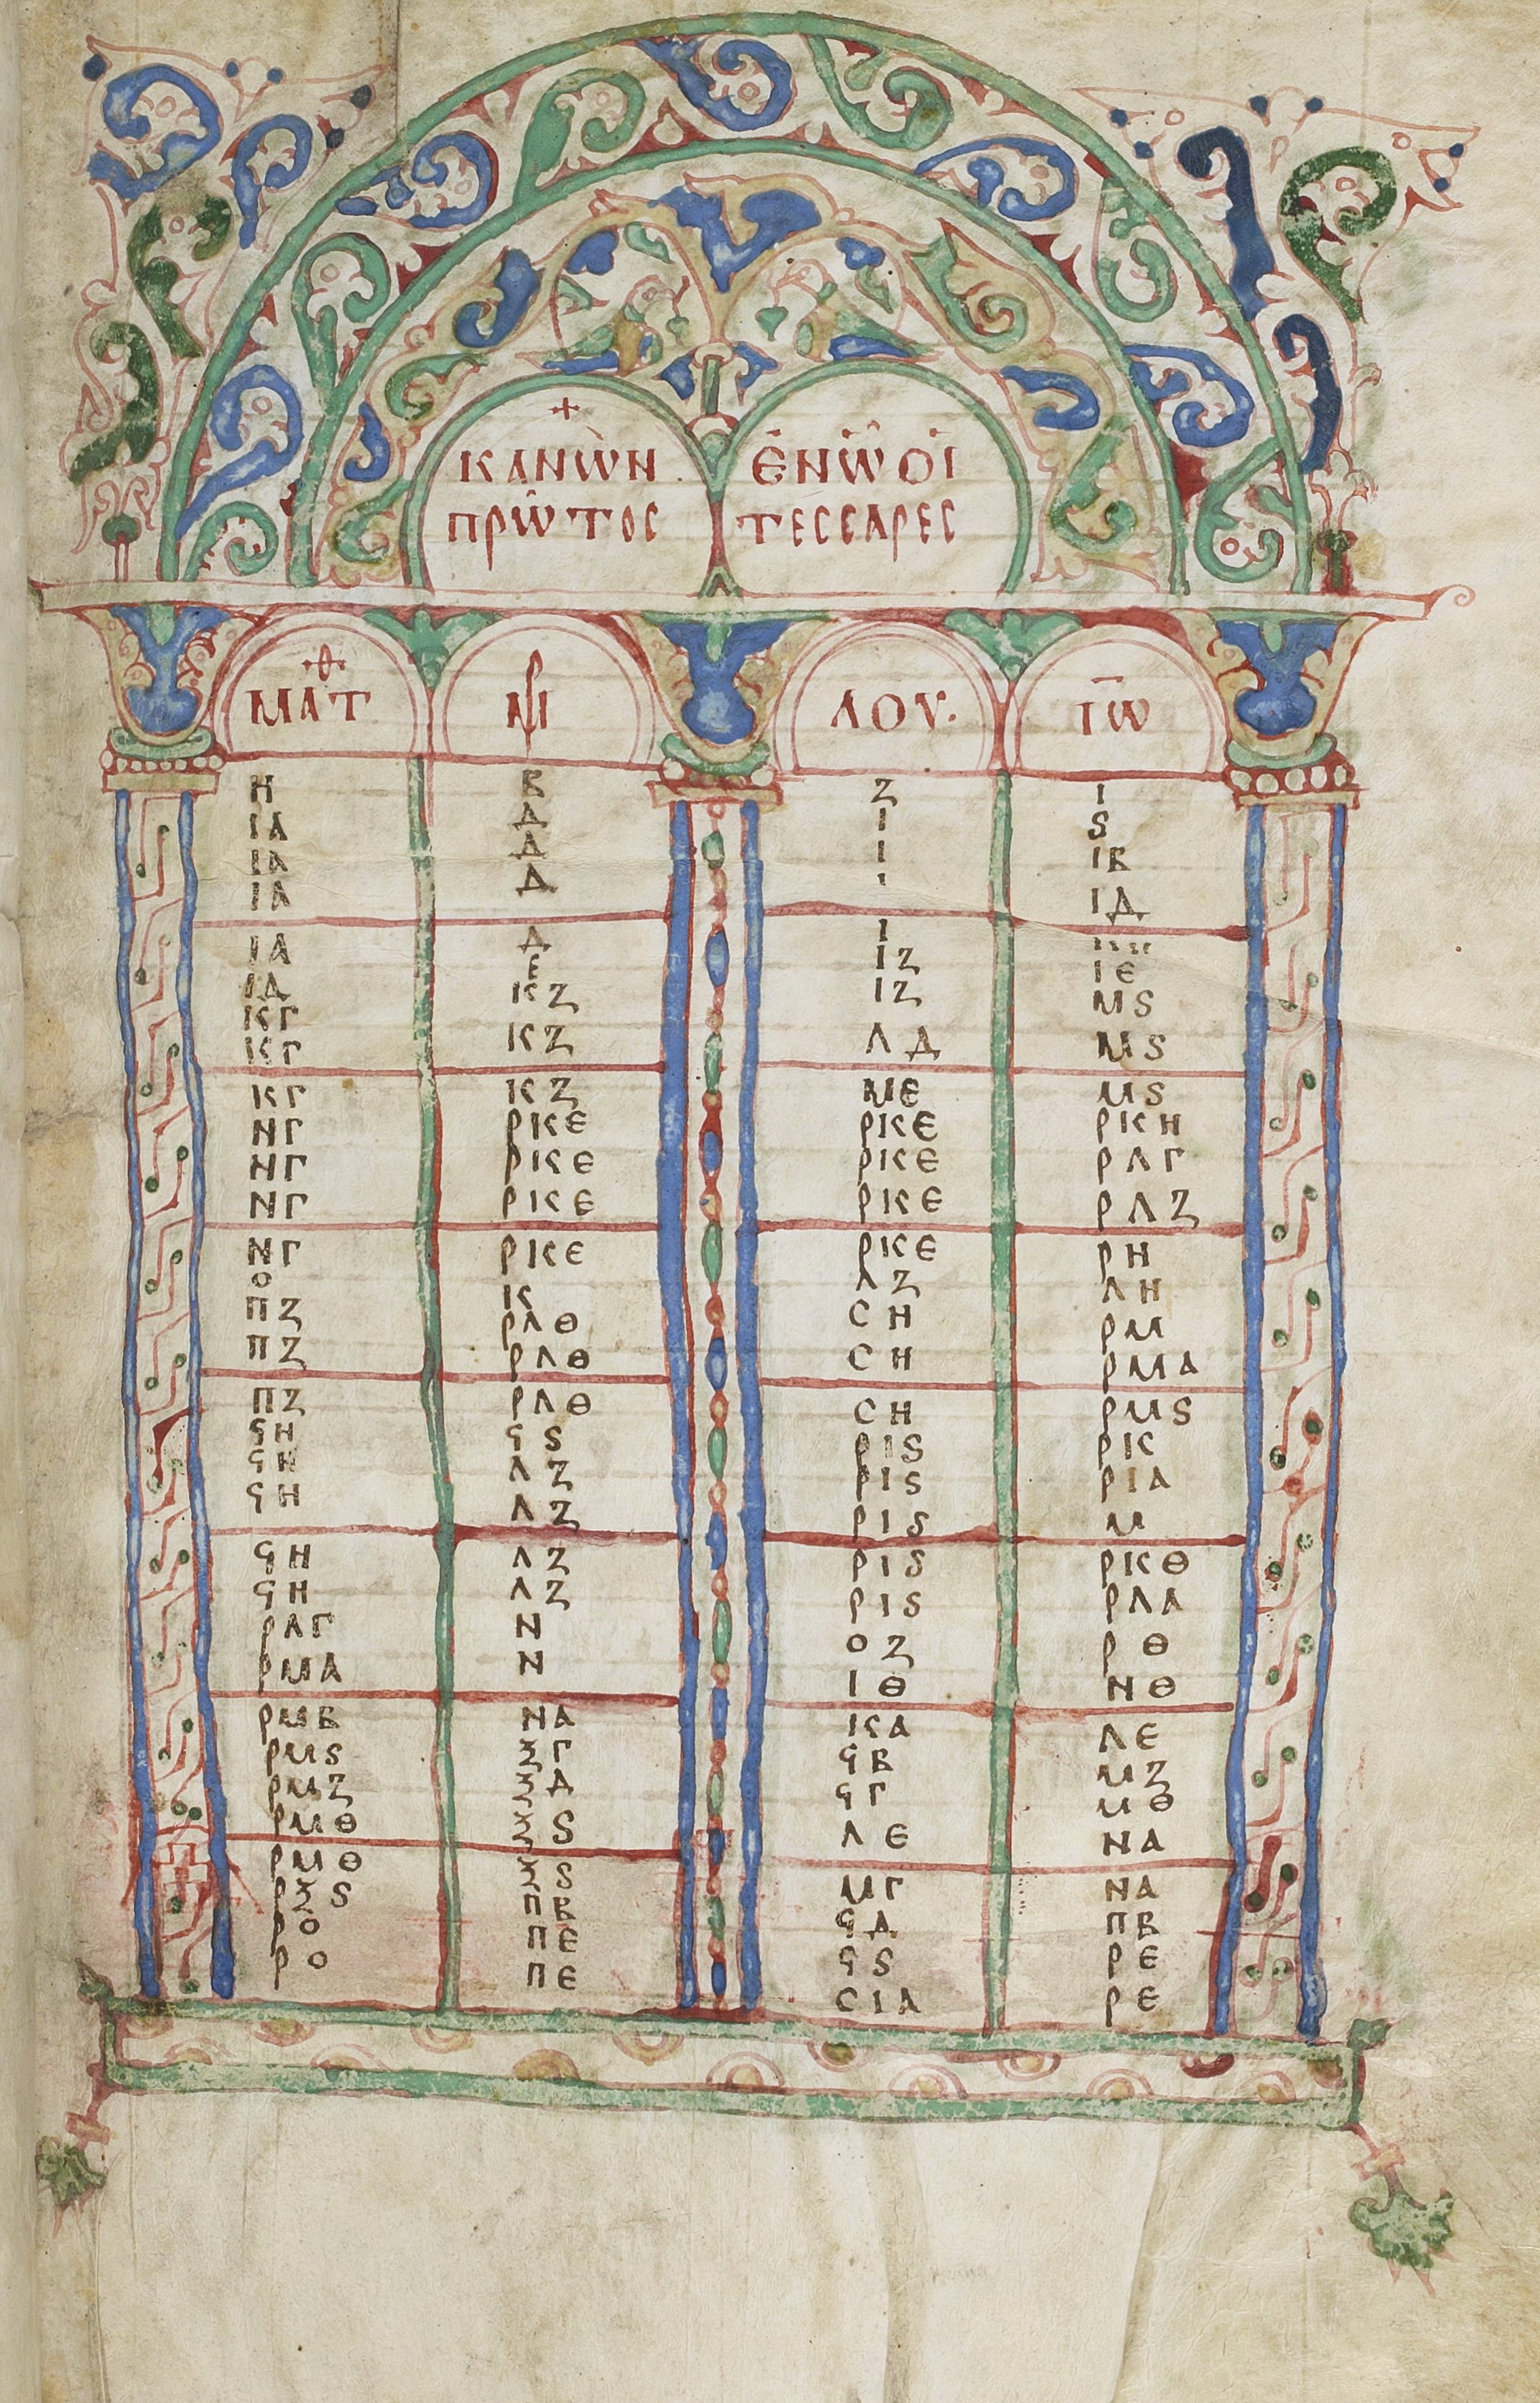 +
ΚΑΝΩΝ ΕΝ Ω ΟΙ
ΠΡΩΤΟϹ ΤΕϹϹΑΡΕϹ
ΜΑΤ ΜΙ ΛΟΥ· ΙΩ
Η Β Ζ Ι
ΙΑ Δ Ι Ϛ
ΙΑ Δ Ι ΙΒ
ΙΑ Δ Ι ΙΔ
ΙΑ Δ Ι
ΙΔ Ε ΙΖ ΙΕ
ΚΓ ΚΖ ΙΖ ΜϚ
ΚΓ ΚΖ ΛΔ ΜϚ
ΚΓ ΚΖ ΜΕ ΜϚ
ΝΓ ΡΚΕ ΡΚΕ ΡΚΗ
ΝΓ ΡΚΕ ΡΚΕ ΡΛΓ
ΝΓ ΡΚΕ ΡΚΕ ΡΛΖ
ΝΓ ΡΚΕ ΡΚΕ ΡΗ
Ο Κ ΛΖ ΛΗ
ΠΖ ΡΛΘ ϹΗ ΡΜ
ΠΖ ΡΛΘ ϹΗ ΡΜΑ
ΠΖ ΡΛΘ ϹΗ ΡΜϚ
ϞΗ ϞϚ ΡΙϚ ΡΚ
ϞΗ ΛΖ ΡΙϚ ΡΙΑ
ϞΗ ΛΖ ΡΙϚ Μ
ϞΗ ΛΖ ΡΙϚ ΡΚΘ
ϞΗ ΛΖ ΡΙϚ ΡΛΑ
ΡΛΓ Ν ΟΖ ΡΘ
ΡΜΑ Ν ΙΘ ΝΘ
ΡΜΒ ΝΑ ΚΑ ΛΕ
ΡΜϚ ΞΓ ϞΒ ΜΖ
ΡΜΖ ΞΔ ϞΓ ΜΘ
ΡΜΘ ΞϚ ΛΕ ΝΑ
ΡΜΘ ΞϚ ΜΓ ΝΑ
ΡΞϚ ΠΒ ϞΔ ΠΒ
ΡΟ ΠΕ ϞϚ ΡΕ
ΡΟ ΠΕ ϹΙΑ ΡΕ